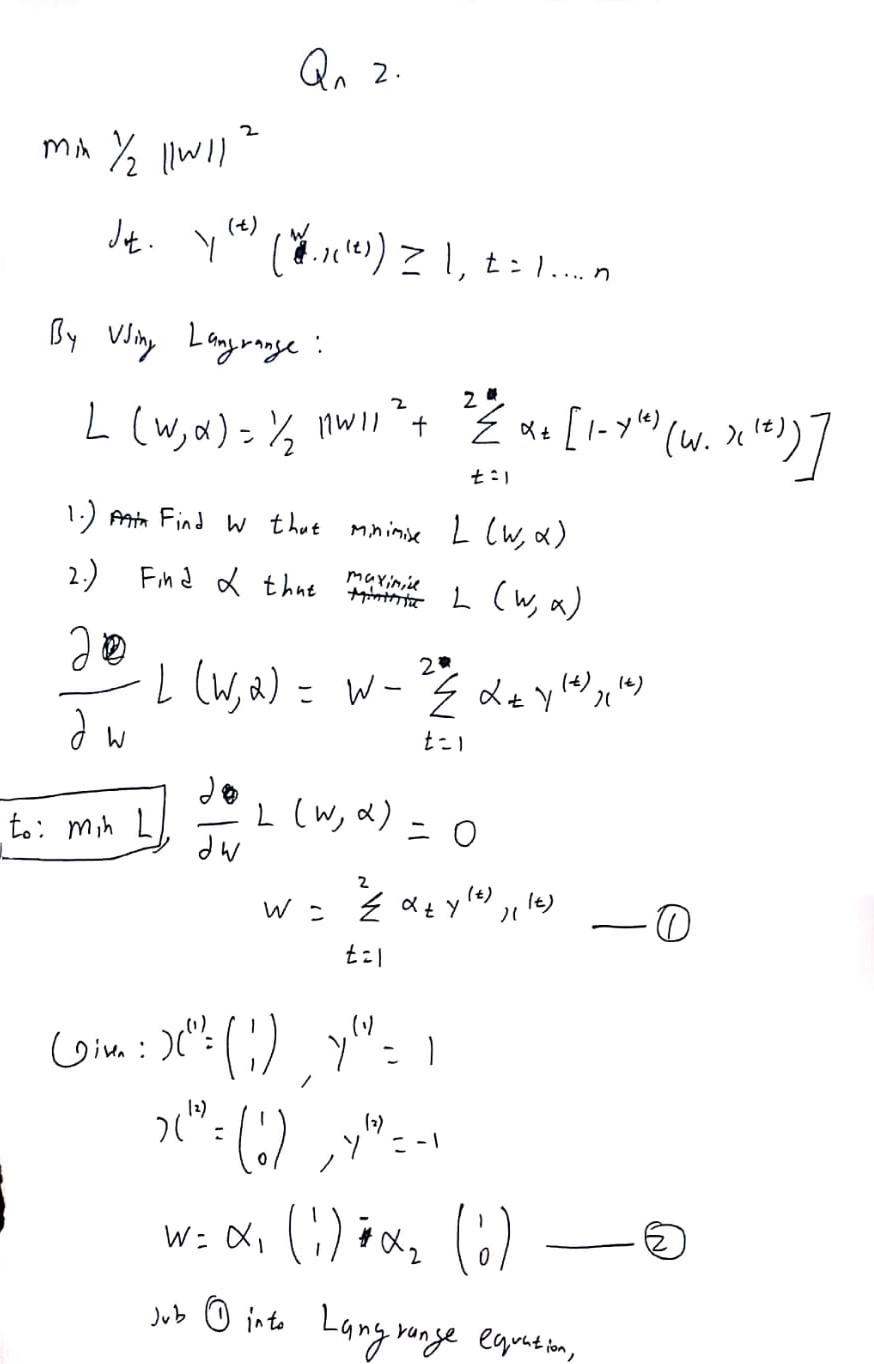 Qn 2.
min ½ ||w||²
st. y^(t) (w.x^(t)) ≥ 1, t = 1.... n
By Using Langrange :
L (w,α) = ½ ||w||² + Σ_{t=1}^{2} α_t [1-y^(t) (w. x^(t))]
1.) Find w that minimise L (w,α)
2.) Find α that maximise L (w,α)
∂/∂w L (w,α) = w - Σ_{t=1}^{2} α_t y^(t) x^(t)
to: min L, ∂/∂w L (w,α) = 0
w = Σ_{t=1}^{2} α_t y^(t) x^(t) — ①
Given : x^(1) = (1 1), y^(1) = 1
x^(2) = (1 0), y^(2) = -1
w = α₁ (1 1) - α₂ (1 0) — ②
sub ① into Langrange equation,